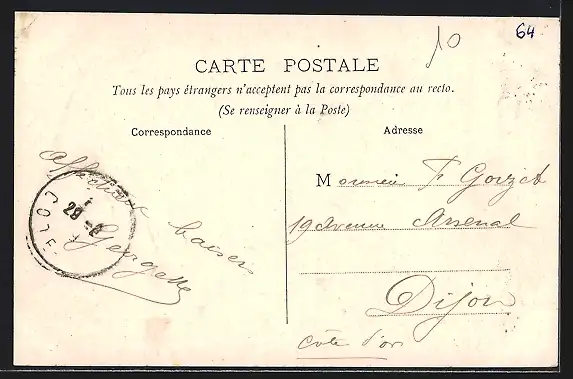 10
64
CARTE POSTALE
Tous les pays étrangers n'acceptent pas la correspondance au recto.
(Se renseigner à la Poste)
Correspondance
Adresse
Affectueux baisers
Georgette
29
Monsieur F Gorzet
19 Avenue Arsenal
Dijon
Côte d'or